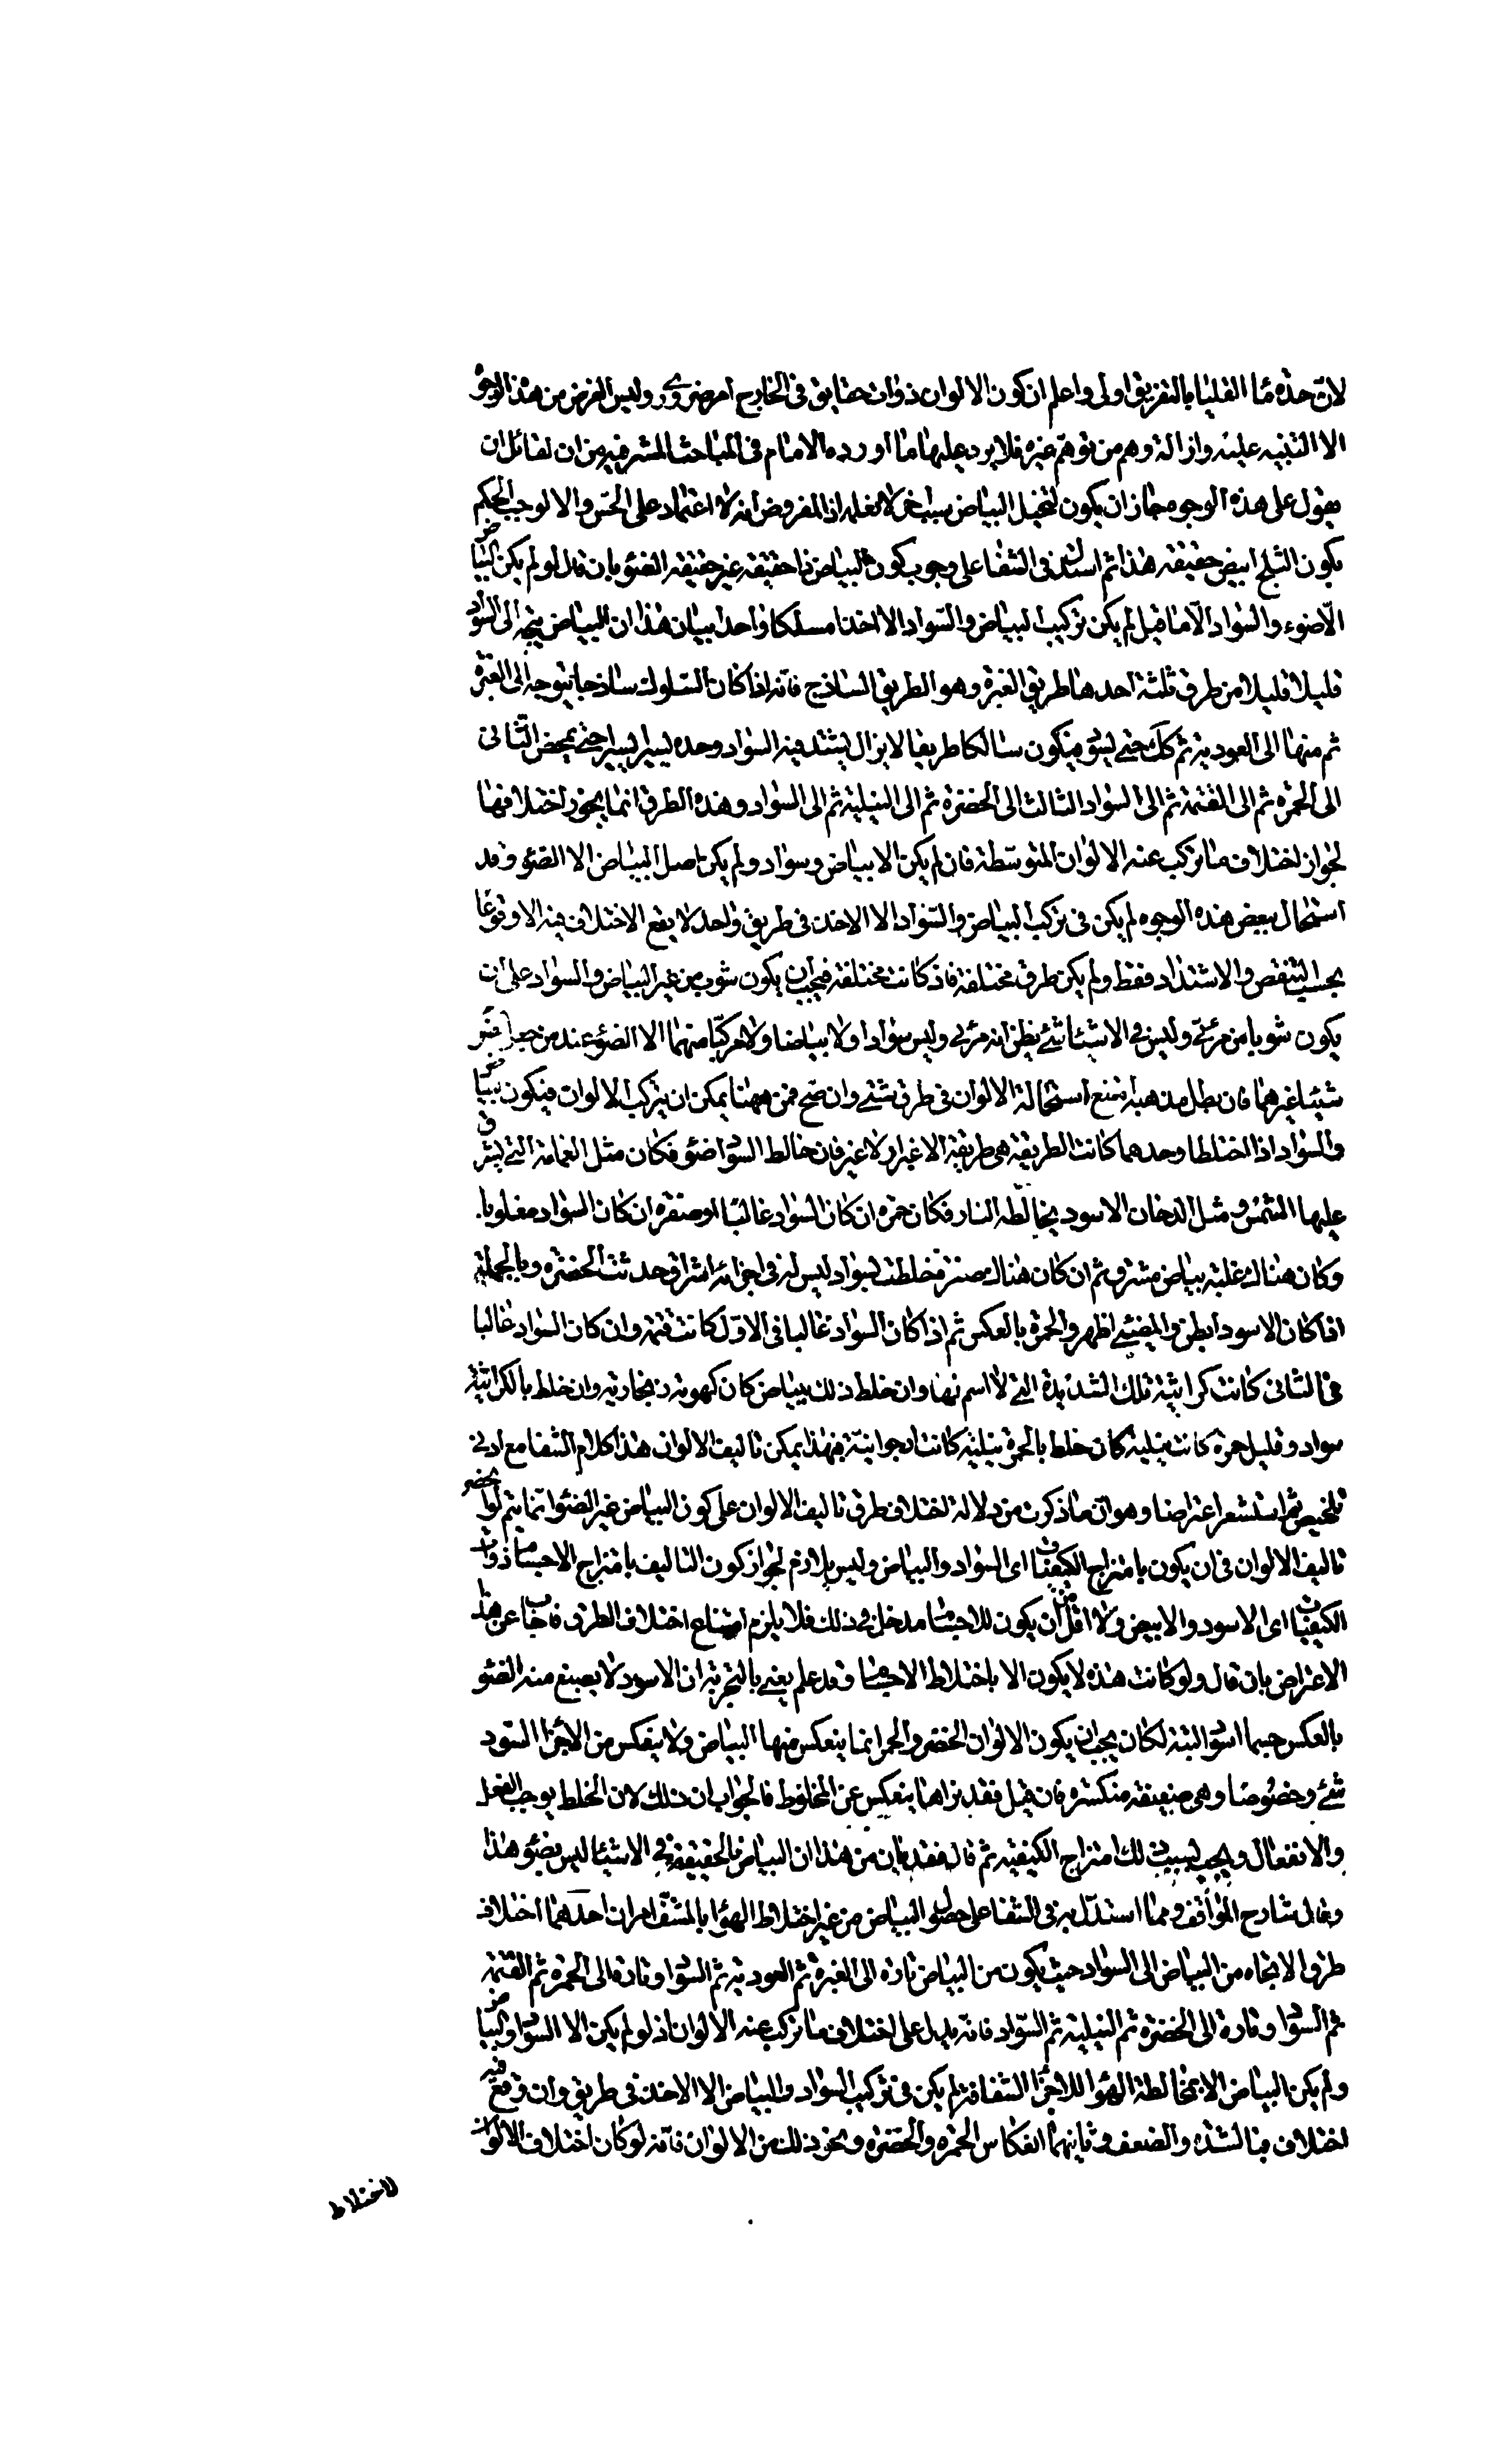 لان حدة ماء القليا بالتفريق اولى واعلم ان كون الالوان ذوات حقايق فى الخارج امر ضرورى وليس الغرض من هذه الوجوه
الا التنبيه عليه وازالة وهم من توهم غيره فلا يرد عليها ما اورده الامام فى المباحث المشرقيه من ان لقائل ان
يقول على هذه الوجوه جاز ان يكون لتخيل البياض سبب اخر لا نعلمه اذ المفروض انه لا اعتماد على الحس والا لوجب الحكم
بكون الثلج ابيض حقيقة هذا ثم استدل فى الشفا على وجوب كون البياض ذا حقيقه غير حقيقه الضوء بان قال لو لم يكن البياض
الا ضوء والسواد الا ما قيل لم يكن تركيب البياض والسواد الا اخذا مسلكا واحدا بيان هذا ان البياض يتجه الى السواد
قليلا قليلا من طرق ثلثة احدها طريق الغبرة وهو الطريق الساذج فانه اذا كان السلوك ساذجا يتوجه الى الغبرة
ثم منها الى العودية ثم كذلك حتى يسود فيكون سالكا طريقا لا يزال يشتد فيه السواد وحده يسيرا يسيرا حتى يمحض الثانى
الى الحمرة ثم الى القتمة ثم الى السواد الثالث الى الخضرة ثم الى النيلية ثم الى السواد وهذه الطرق انما يجوز اختلافها
لجواز اختلاف ما تركب عنه الالوان المتوسطة فان لم يكن الا بياض وسواد ولم يكن اصل البياض الا الضوء وقد
استحال ببعض هذه الوجوه لم يكن فى تركيب البياض والسواد الا الاخذ فى طريق واحد لا يقع الاختلاف فيه الا وقوعا
بحسب التنقص والاشتداد فقط ولم يكن طرق مختلفة فاذ كانت مختلفة فيجب ان يكون شوب من غير البياض والسواد على ان
يكون شوبا من مرئى وليس فى الاشياء شئ يظن انه مرئى وليس سوادا ولا بياضا ولا مركبا منهما الا الضوء عند من جعل الضوء
شيئا غيرهما فان بطل مذهبه امتنع استحالة الالوان فى طرق شتى وان صح فمن ههنا يمكن ان يتركب الالوان فيكون البياض
والسواد اذا اختلطا وحدهما كانت الطريقه هى طريقة الاغبرار لا غير فان خالط السواد ضوء فكان مثل الغمامة التى يشرق
عليها الشمس ومثل الدخان الاسود يخالطه النار فكان حمرة ان كان السواد غالبا او صفرة ان كان السواد مغلوبا
وكان هناك غلبة بياض مشرق ثم ان كان هناك صفرة خلطت بسواد ليس له فى اجزائه اشراق حدثت الخضرة وبالجملة
اذا كان الاسود ابطن والمضيئ اظهر والحمرة بالعكس ثم اذا كان السواد غالبا فى الاول كانت قتمة وان كان السواد غالبا
فى الثانى كانت كراثية تلك الشديدة التى لا اسم لها وان خلط ذلك ببياض كان كهوبة زنجارية وان خلط بالكراثية
سواد وقليل حمرة كانت نيلية كان خلط بالحمرة نيلية كانت ارجوانية فبهذا يمكن تاليف الالوان هذا كلام الشفا مع ادنى
تلخيص ثم استشعر اعتراضا وهو ان ما ذكرت من دلالة اختلاف طرق تاليف الالوان على كون البياض غير الضوء انما يتم لو انحصر
تاليف الالوان فى ان يكون بامتزاج الكيفيات اى السواد والبياض وليس بلازم لجواز كون التاليف بامتزاج الاجسام ذوات
الكيفيات اى الاسود والابيض ولا اقل من ان يكون للاجسام مدخل فى ذلك فلا يلزم امتناع اختلاف الطرق فاجاب عن هذا
الاعتراض بان قال ولو كانت هذه لا يكون الا باختلاط الاجسام وقد علم يعنى بالتجربة ان الاسود لا يصبغ منه الضوء
بالعكس جسما اسود البتة لكان يجب ان يكون الالوان الخضر والحمر انما ينعكس منها البياض ولا ينعكس من الاجزاء السود
شئ وخصوصا وهى ضعيفة منكسره فان قيل فقد نراها ينعكس عن المخلوط فالجواب ان ذلك لان الخلط يوجب الفعل
والانفعال ويجب بسبب ذلك امتزاج الكيفية ثم قال فقد بان من هذا ان البياض بالحقيقة فى الاشياء ليس بضوء هذا
وقال شارح المواقف ومما استدل به فى الشفا على حصول البياض من غير اختلاط الهواء بالمشف امران احدهما اختلاف
طرق الاتجاه من البياض الى السواد حيث يكون من البياض تارة الى الغبرة ثم العودية ثم السواد وتارة الى الحمرة ثم القتمة
ثم السواد وتارة الى الخضرة ثم النيلية ثم السواد فانه يدل على اختلاف ما تركب عنه الالوان اذ لو لم يكن الا السواد والبياض
ولم يكن البياض الا بمخالطة الهواء للاجزاء الشفافة لم يكن فى تركيب السواد والبياض الا الاخذ فى طريق وان وقع فيه
اختلاف فبالشدة والضعف وثانيهما انعكاس الحمرة والخضرة ونحو ذلك من الالوان فانه لو كان اختلاف الالوان
لاختلاط